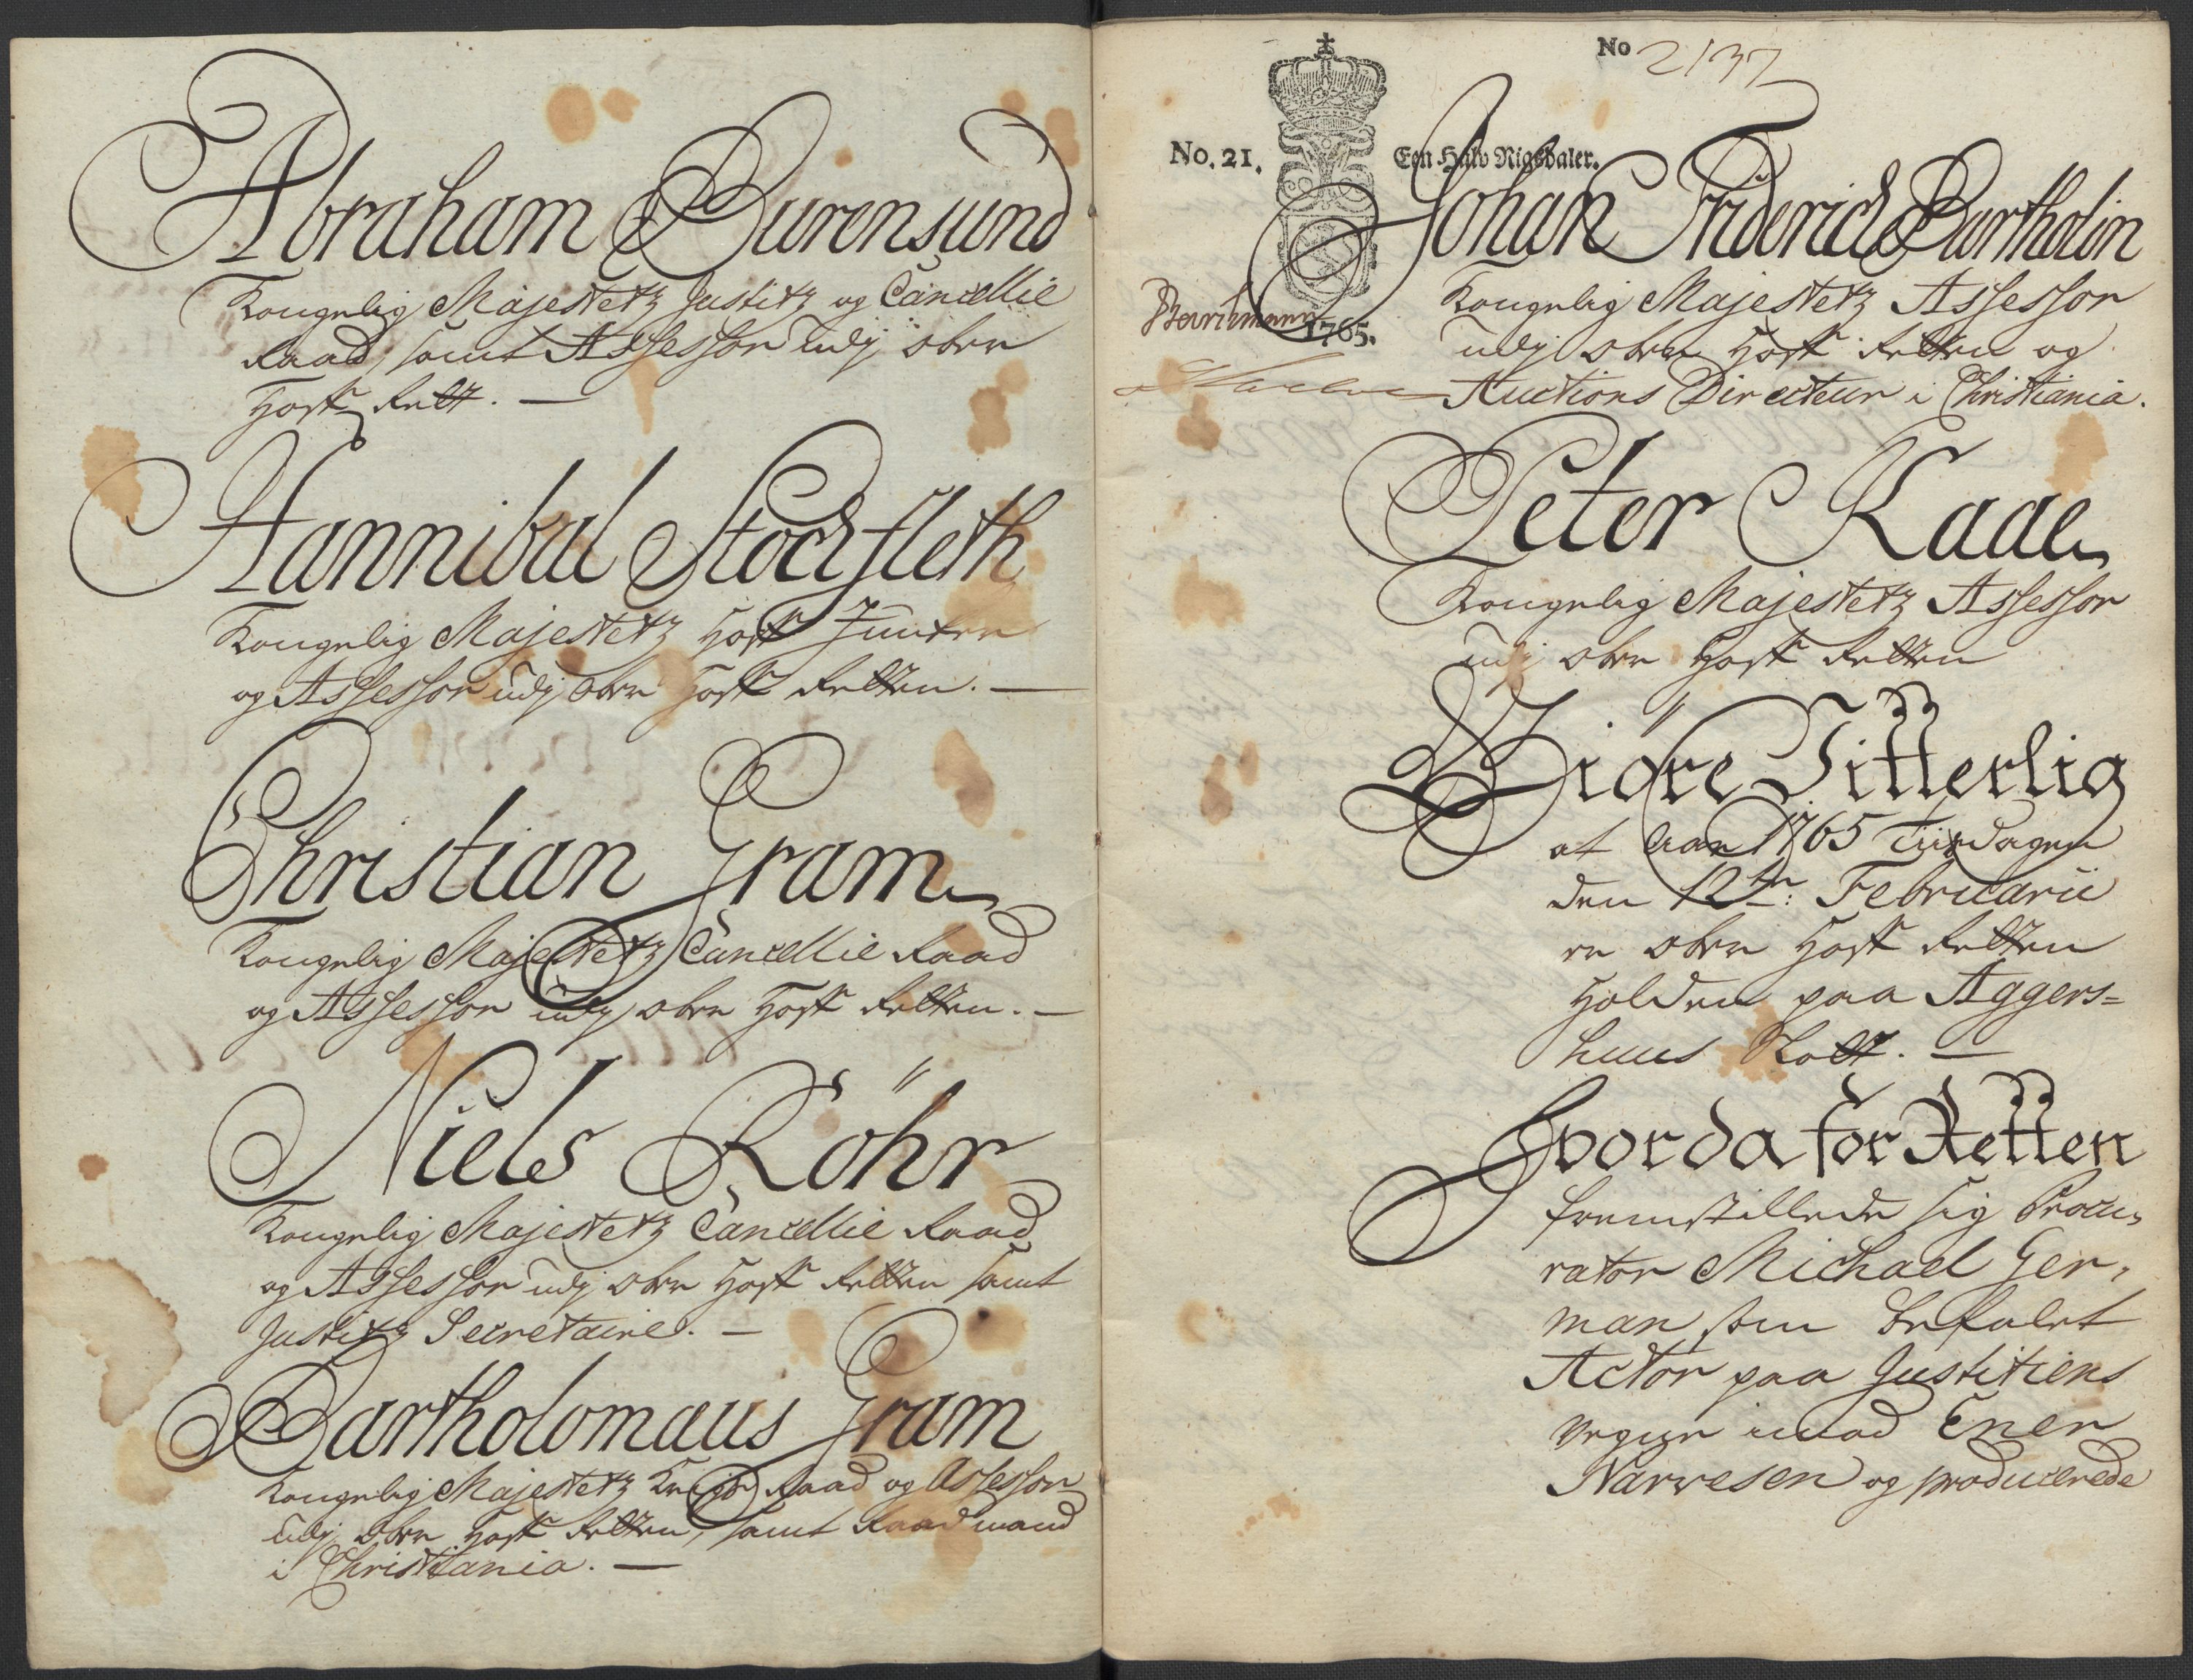 Abraham Burensund
Kongelig Majestetz Justitz og Cancellie
Raad, samt Assessor udj Over
Hoff Rett. —
Hannibal Stockfleth
Kongelig Majestetz Hoff Juncker
og Assessor udj Over Hoff Retten. —
Christian Gram
Kongelig Majestetz Cancellie Raad
og Assessor udj Over Hoff Retten. —
Niels Röhr
Kongelig Majestetz Cancellie Raad
og Assessor udj Over Hoff Retten samt
Justitz Secretaire. —
Bartholomæus Gram
Kongelig Majestetz Krigs Raad og Assessor
udj Over Hoff Retten, samt Raadmand
i Christiania. —
No 2137
No. 21.
Een Halv Rigsdaler.
1765.
Johan Friderich Bartholin
Kongelig Majestetz Assessor
udj Over Hoff Retten og
Auctions Directeur i Christiania.
Peter Kaae
Kongelig Majestetz Assessor
udj Over Hoff Retten
Giöre Vitterlig
at Aar 1765 Tiisdagen
den 12te: Februarii
er Over Hoff Retten
Holden paa Aggers=
huus Slott. —
Hvorda for Retten
fremstillede sig Procu,
rator Michael Ger,
man som befalet
Actor paa Justitiens
Vegne imod Ener
Narvesen og producerede